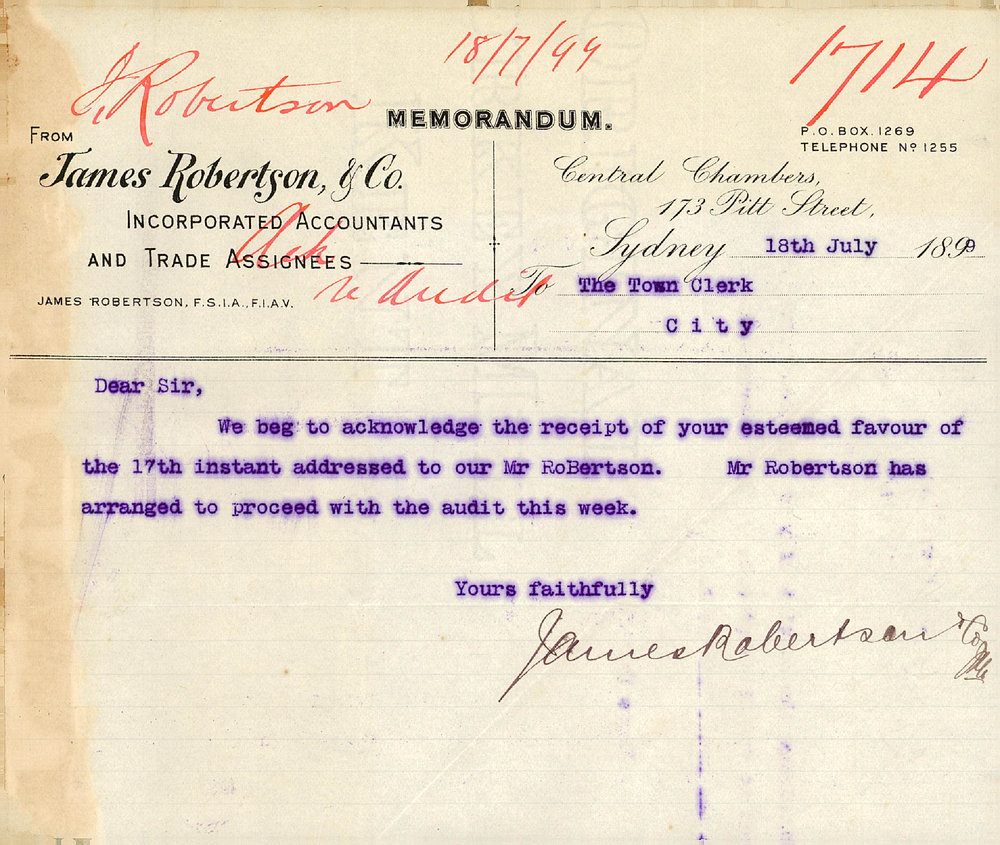 18/7/99
1714
J. Robertson
MEMORANDUM.
P.O. BOX. 1269
TELEPHONE Nº 1255
FROM
James Robertson, & Co.
INCORPORATED ACCOUNTANTS
AND TRADE ASSIGNEES
JAMES ROBERTSON, F.S.I.A., F.I.A.V.
Ack
re Audit
Central Chambers,
173 Pitt Street,
Sydney 18th July 1899
To The Town Clerk
City
Dear Sir,
We beg to acknowledge the receipt of your esteemed favour of
the 17th instant addressed to our Mr RoBertson. Mr Robertson has
arranged to proceed with the audit this week.
Yours faithfully
James Robertson & Co